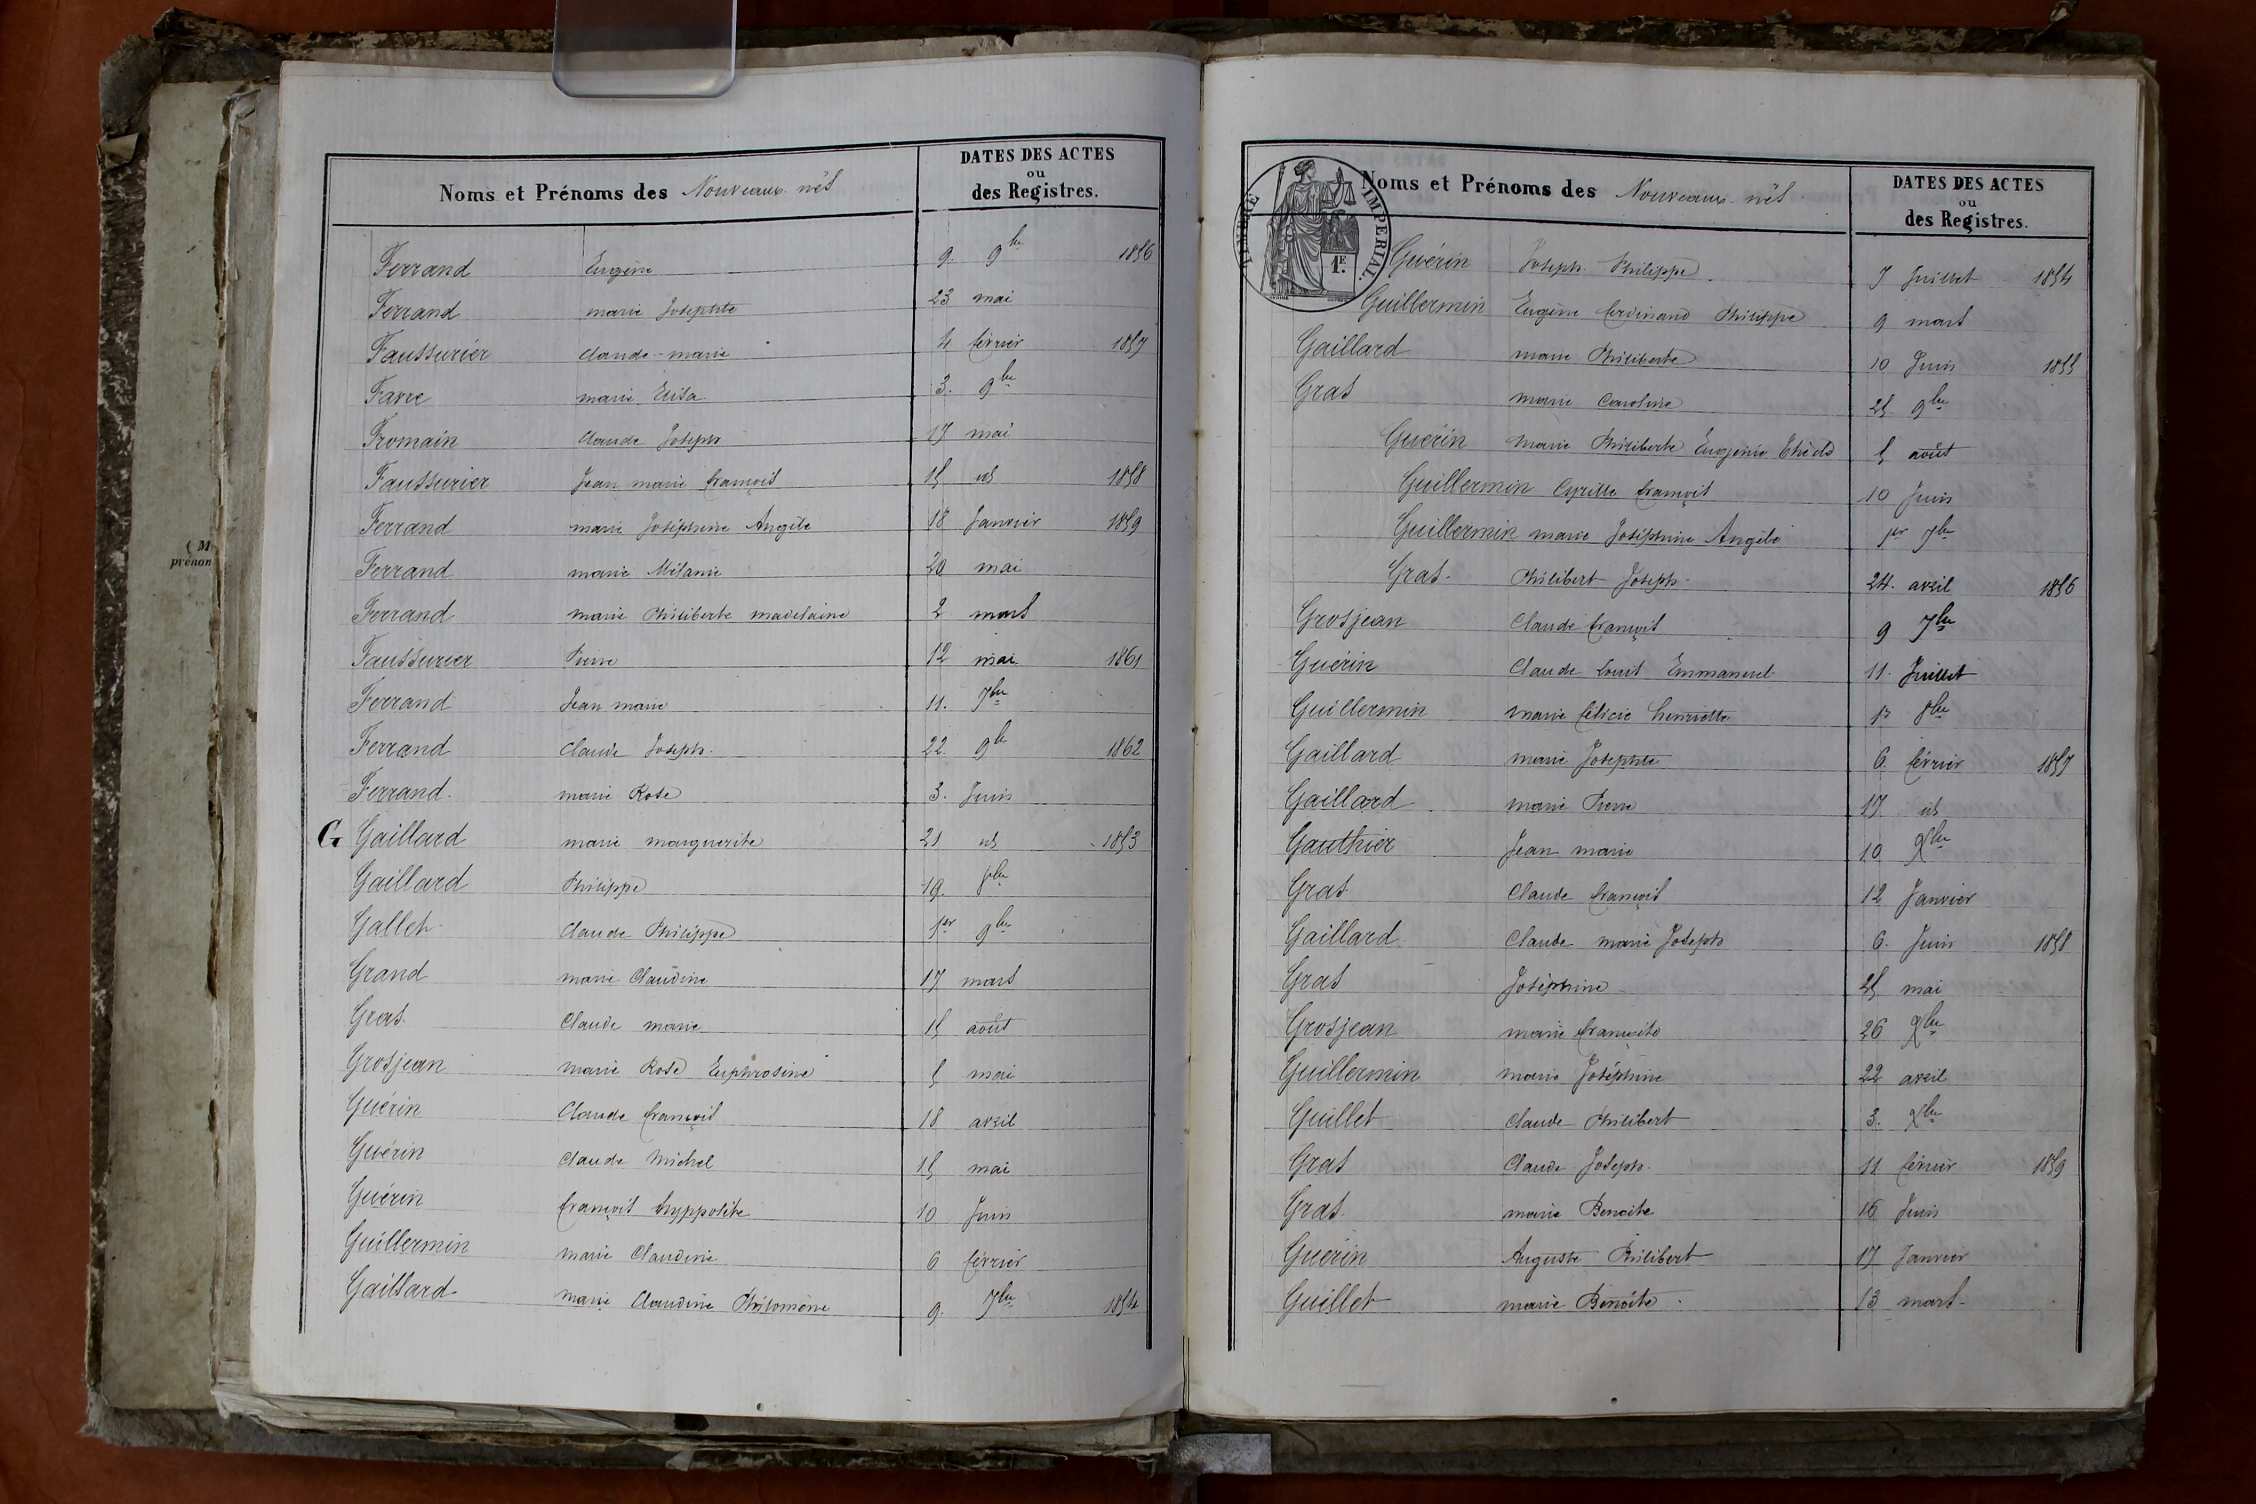 (M
prénom
Noms et Prénoms des Nouveaux nés
DATES DES ACTES
ou
des Registres.
Ferrand Eugène 9. 9bre 1856
Ferrand marie Josephte 23 mai
Faussurier Claude-marie 4 février 1857
Favre marie Elisa 3. 9bre
Fromain Claude Joseph 17 mai
Faussurier Jean marie françois 15 id 1858
Ferrand marie Joséphine Angèle 18 Janvier 1859
Ferrand marie Mélanie 20 mai
Ferrand marie Philiberte madelaine 2 mars
Faussurier Pierre 12 mai 1861
Ferrand Jean marie 11. 7bre
Ferrand Claude Joseph. 22 9b 1862
Ferrand. marie Rose 3. Juin
G Gaillard marie marguerite 21 id 1853
Gaillard Philippe 19. 8bre
Gallet Claude Philippe 1er 9bre
Grand marie Claudine 17 mars
Gras. Claude marie 15 août
Grosjean marie Rose Euphrosine 5 mai
Guérin Claude françois 18 avril
Guérin Claude Michel 15 mai
Guérin françois hyppolite 10 Juin
Guillermin marie Claudine 6 février
Gaillard marie Claudine Philomène 9. 7bre 1854
Noms et Prénoms des Nouveaux nés
DATES DES ACTES
ou
des Registres.
TIMBRE IMPÉRIAL.
1.E
Guérin Joseph Philippe 7 Juillet 1854
Guillermin Eugène ferdinand Philippe 9 mars
Gaillard marie Philiberte 10 Juin 1855
Gras marie Caroline 25 9bre
Guérin marie Philiberte Eugénie 5 août
Guillermin Cyrille françois 10 Juin
Guillermin marie Joséphine Angèle 1er 7bre
Gras. Philibert Joseph. 24. avril 1856
Grosjean Claude françois 9 7bre
Guérin Claude Louis Emmanuel 11. Juillet
Guillermin marie félicie henriette 1er 8bre
Gaillard marie Josephte 6. février 1857
Gaillard marie Pierre 17. id
Gauthier Jean marie 10 Xbre
Gras Claude françois 12 Janvier
Gaillard. Claude marie Joseph 6. Juin 1858
Gras Joséphine 25 mai
Grosjean marie françoise 26 Xbre
Guillermin marie Joséphine 22 avril
Guillet Claude Philibert 3. Xbre
Gras Claude Joseph. 11 février 1859
Gras marie Benoite 16 Juin
Guérin Auguste Philibert 17 Janvier
Guillet marie Benoite 13 mars